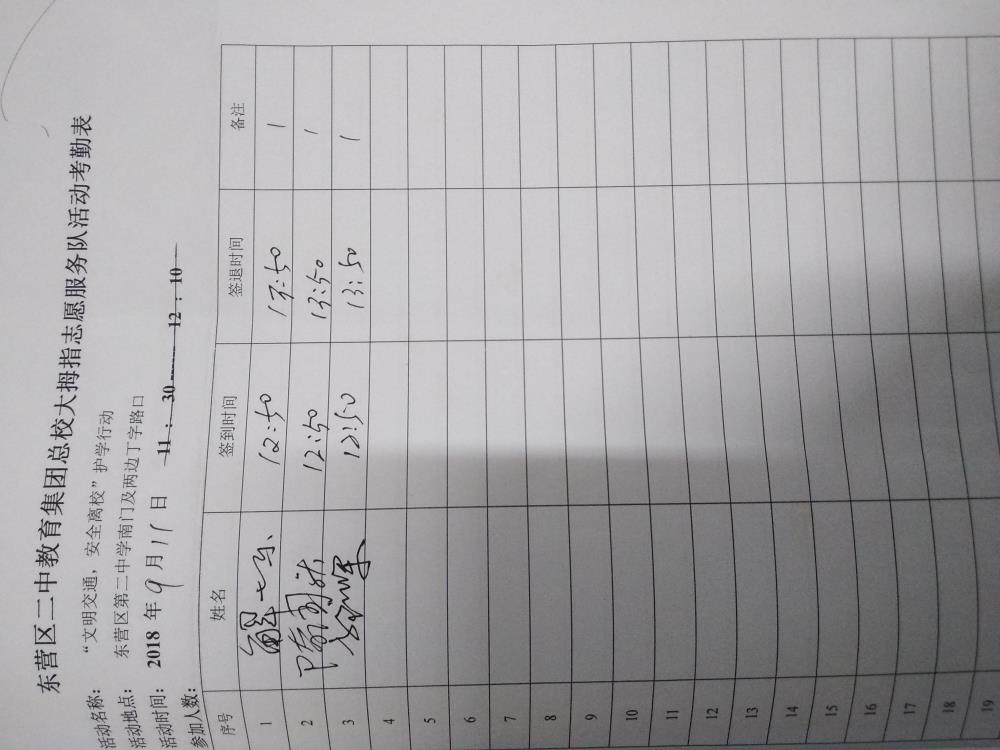 东营区二中教育集团总校大拇指志愿服务队活动考勤表
活动名称： “文明交通，安全离校”护学行动
活动地点： 东营区第二中学南门及两边丁字路口
活动时间： 2018 年 9 月 11 日 11：30------12：10
参加人数：
序号 姓名 签到时间 签退时间 备注
1 12:50 13:50 1
2 12:50 13:50 1
3 12:50 13:50 1
4
5
6
7
8
9
10
11
12
13
14
15
16
17
18
19